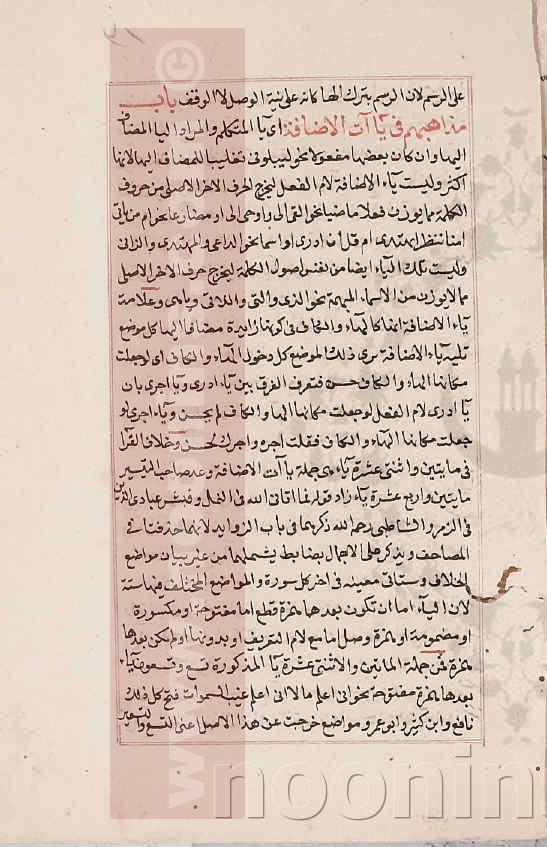 على الرسم لان الرسم بترك الها كانه على نية الوصل لا الوقف باب
مذاهبهم في يآآت الاضافة اي يآ المتكلم والمراد اليا المضاف
اليها وان كان بعضها مفعولا نحو ليبلوني تغليبا للمضاف اليها لانها
اكثر وليست يآء الاضافة لام الفعل ليخرج الحرف الاخر الاصلي من حروف
الكلمة مما يوزن فعلا ماضيا نحو القى الي واوحى الي او مضارعا نحو ام من ياتي
امنا ننظر اتهتدي ام قل ان ادري او اسما نحو الداعي والمهتدي والزاني
وليست تلك الياء ايضا من نفس اصول الكلمة ليخرج حرف الاخر الاصلي
مما لا يوزن من الاسماء المبهمة نحو الذي والتي واللاتي وياءى وعلامة
يآء الاضافة انها كالهاء والكاف في كونها زايدة مضافا اليها كل موضع
تليه ياء الاضافة يرى ذلك الموضع كل دخول الهاء والكاف اي لو جعلت
مكانها الهاء والكاف حسن فتعرف الفرق بين ياء ادري ويآ اجري بان
يآ ادري لام الفعل لو جعلت مكانها الها والكاف لم يحسن ويآء اجري لو
جعلت مكانها الهاء والكاف فقلت اجره واجرك لحسن وخلاف القرا
في مايتين واثنتي عشرة يآء هي جملة يا آت الاضافة وعد صاحب التيسير
مايتين واربع عشرة يآء زاد قوله فما اتاني الله في النمل وفبشر عبادي الذين
في الزمر والشاطبي رحمه الله ذكرهما في باب الزوايد لانهما حذفتا في
المصاحف ويذكر على الاجمال بضابط يشملها من غير بيان مواضع
الخلاف وستاتي معينه في اخر كل سورة والمواضع المختلف فيها ستة
لان اليآء اما ان تكون بعدها همزة قطع اما مفتوحة او مكسورة
او مضمومة او همزة وصل اما مع لام التعريف او بدونها او لم يكن بعدها
همزة فمن جملة المايتين والاثنتي عشرة يآ المذكورة تسع وتسعون يآء
بعدها همزة مفتوحة نحو اني اعلم ما لا اني اعلم غيب السموات فتح كل ذلك
نافع وابن كثير وابو عمرو مواضع خرجت عن هذا الاصل اعني التسع والتسعين
noonin